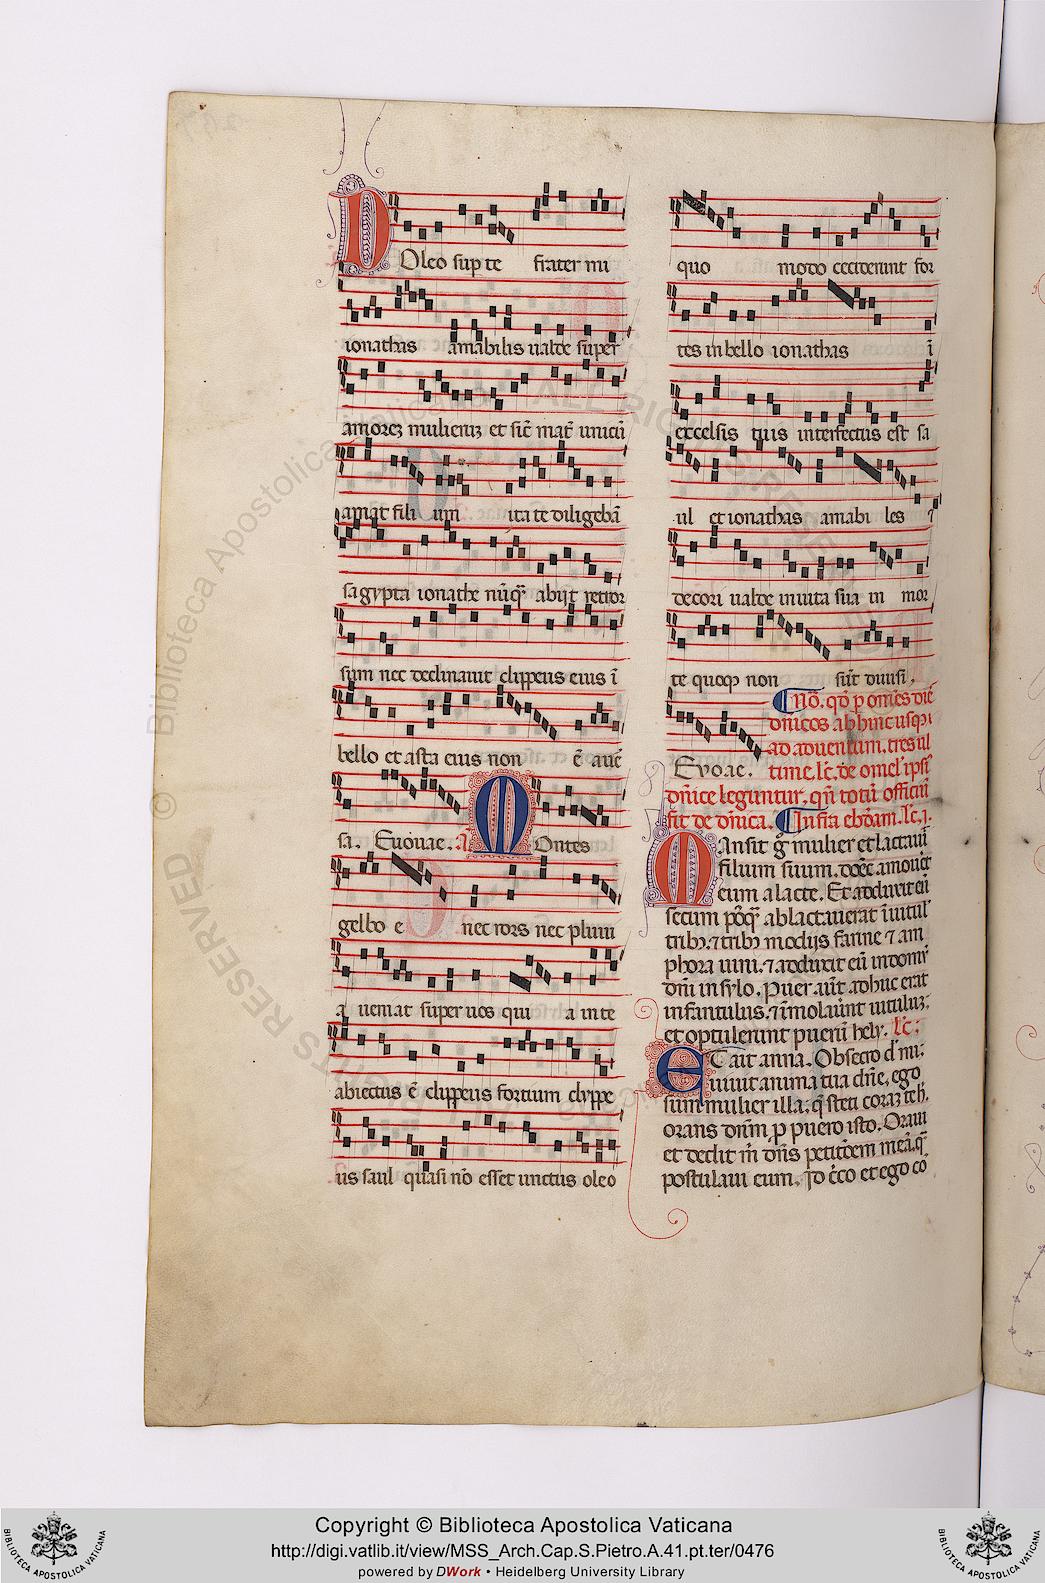 DOleo sup te frater mi
ionathas amabilis ualde super
amorez mulierũ et sic̃ mat̃ unicũ
amat fili um ita te diligebã
sagypta ionathe nũq̃ abijt retror
sum nec declinauit clippeus eius ĩ
bello et asta eius non ẽ auẽ
sa. Euouae. MOntes
gelbo e nec rors nec pluui
a ueniat super uos qui a in te
abiectus ẽ clippeus fortium clyppe
us saul quasi nõ esset unctus oleo
quo modo ceciderunt for
tes in bello ionathas ĩ
excelsis tuis interfectus est sa
ul et ionathas amabi les ⁊
decori ualde in uita sua in mor
te quoqꝫ non sũt diuisi.
Nõ. qd̃ p omẽs diẽ
dñicos ab hinc usqꝫ
ad aduentum. tres ul
Evoae. time. lc̃. de omel' ipsi'
dñice leguntur. qñ totũ officiũ
fit de dñica. Infra ebdam. lc̃. j.
MAnsit g̃ mulier et lactauit
filium suum. donec amoueret
eum a lacte. Et adduxit eũ
secum pq̃ ablactauerat ĩ uitul'
tribꝫ. ⁊ tribꝫ modijs farine ⁊ am
phora uini. ⁊ adduxit eũ in domũ
dñi in sylo. Puer aũt adhuc erat
infantulus. ⁊ ĩmolauer̃t uitulũ:
et optulerunt puerũ hely. lc̃:
eT ait anna. Obsecro d' mi:
uiuit anima tua dñe, ego
sum mulier illa. q̃ steti coraz te h.
orans dñm. p puero isto. Oraui
et dedit m̃ dñs petitõem meã. q̃
postulaui eum. Id c̃co et ego cõ
Copyright © Biblioteca Apostolica Vaticana
http://digi.vatlib.it/view/MSS_Arch.Cap.S.Pietro.A.41.pt.ter/0476
powered by DWork • Heidelberg University Library
BIBLIOTECA APOSTOLICA VATICANA
BIBLIOTECA APOSTOLICA VATICANA
© Biblioteca Apostolica Vaticana ALL RIGHTS RESERVED